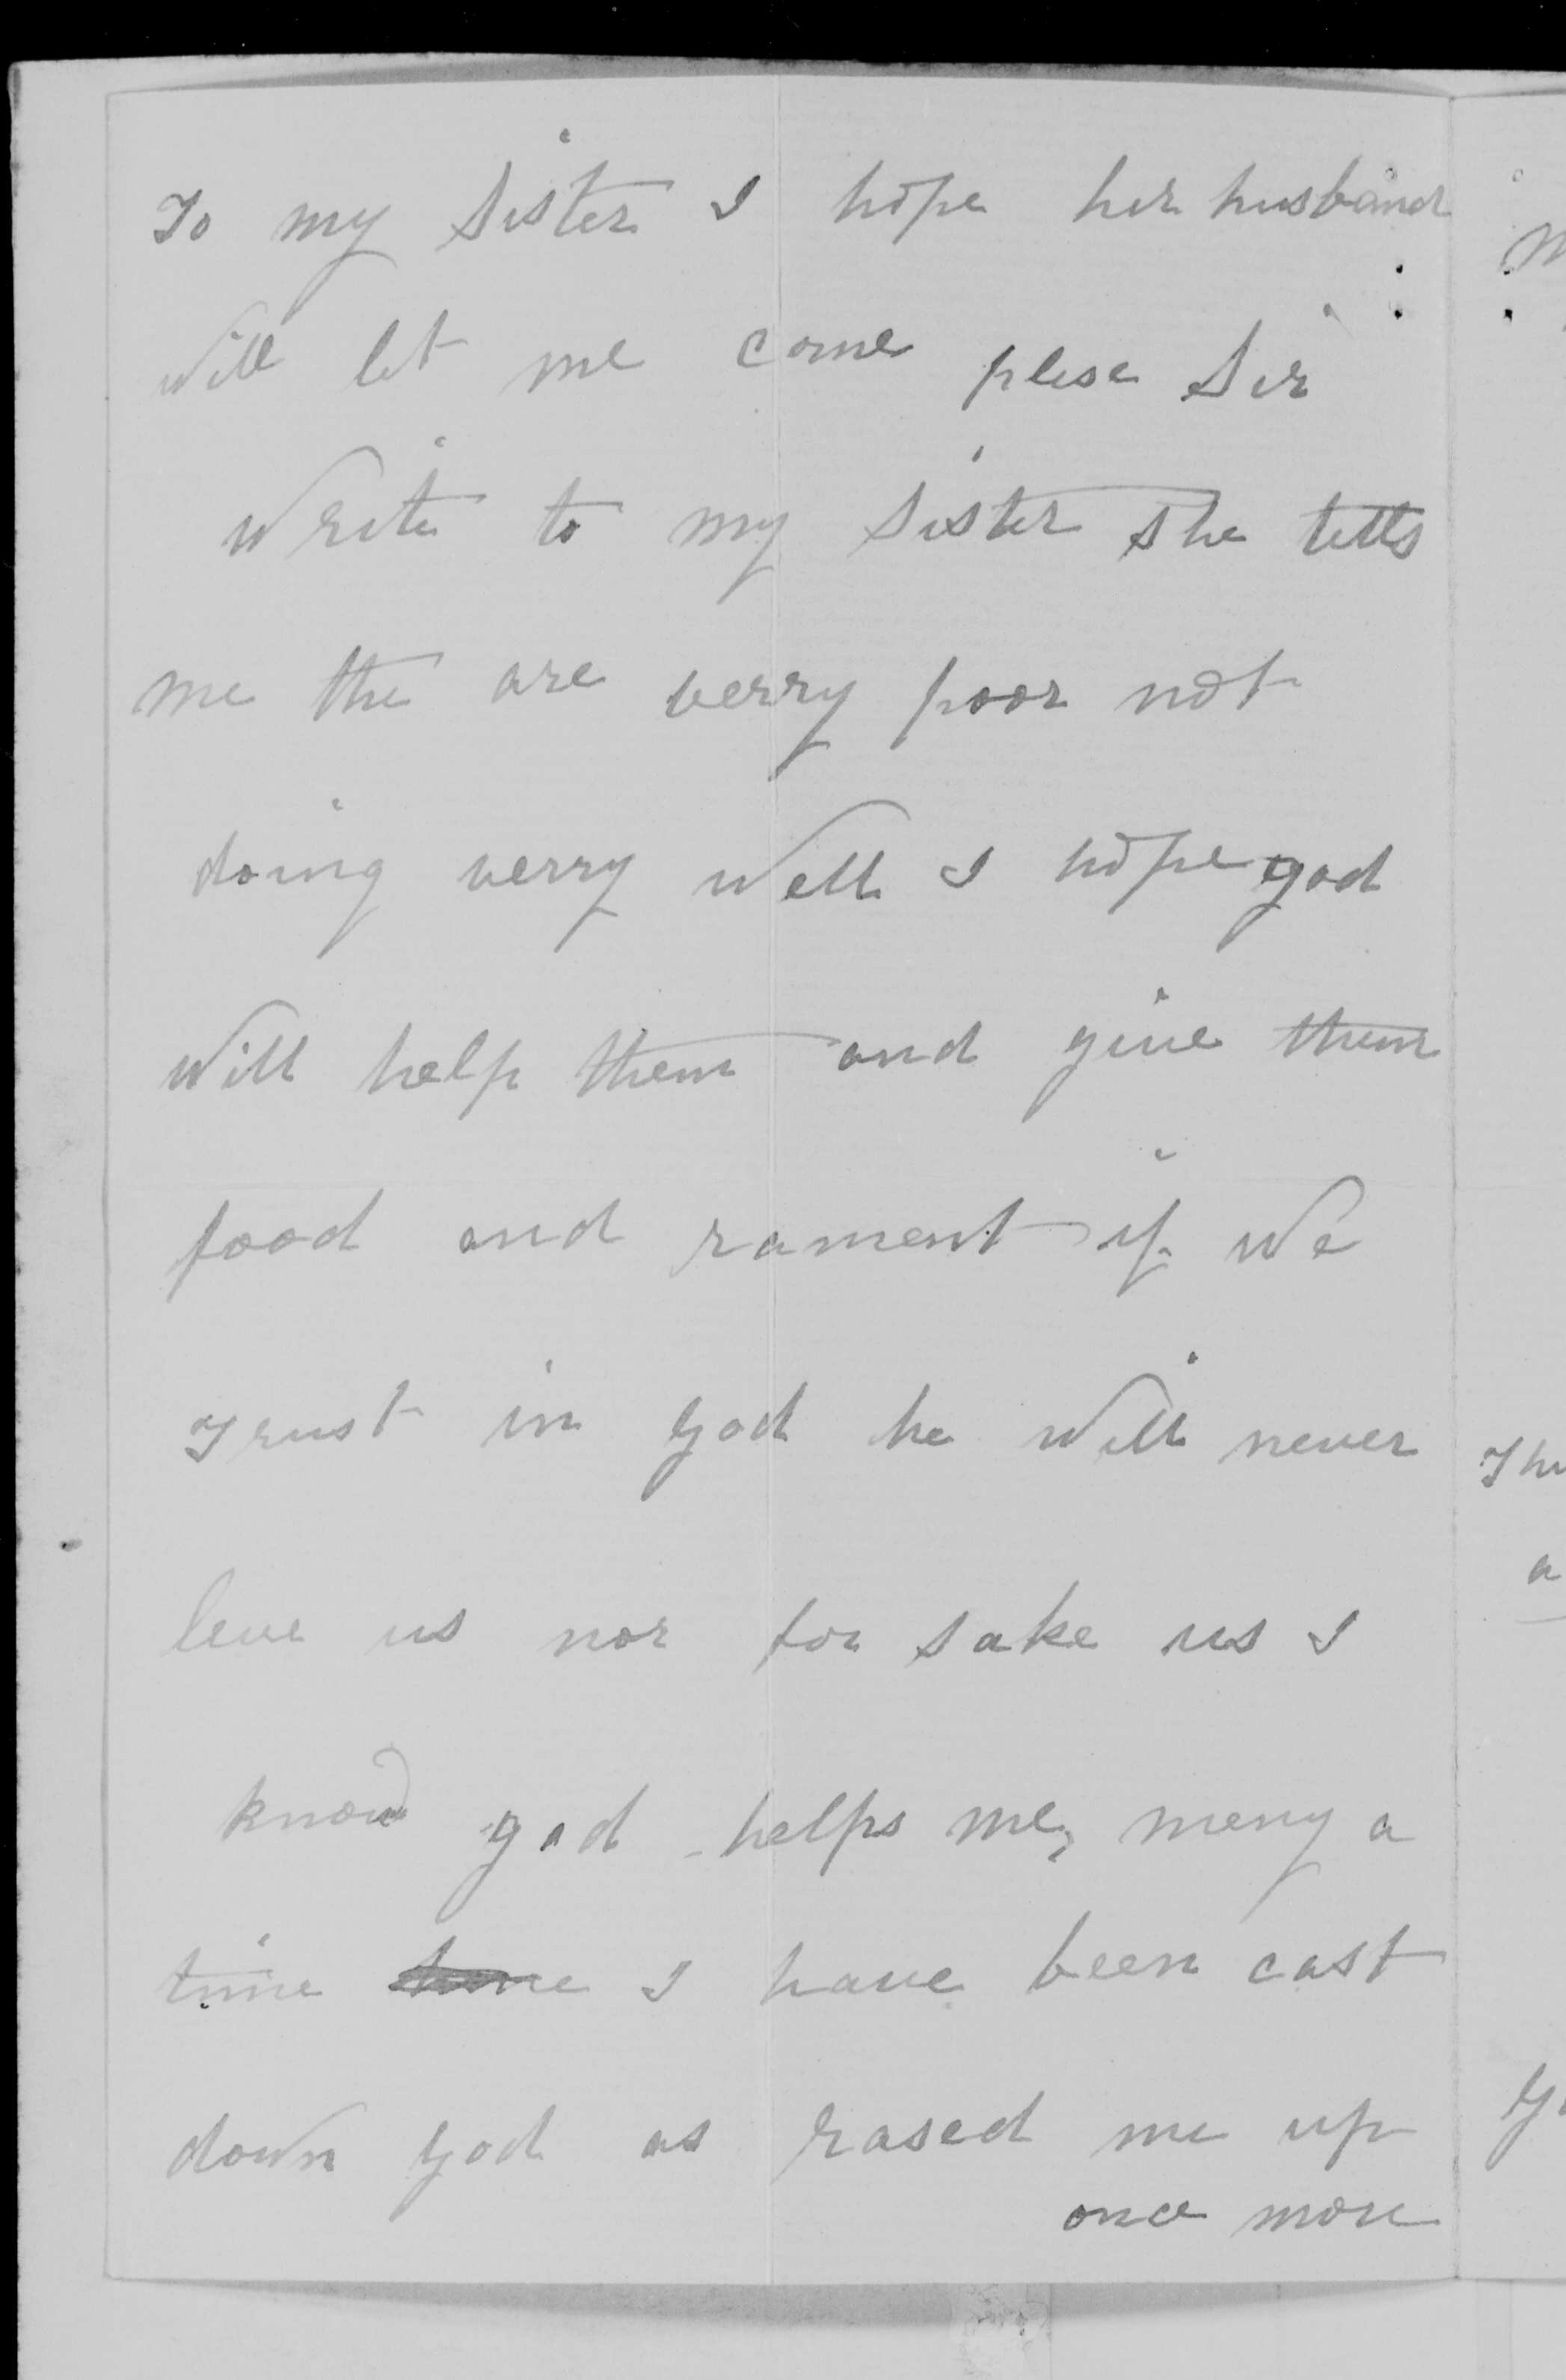 To my Sister I hope her husband
Will let me come plese Sir
Write to my Sister She tells
me the are verry poor not
doing verry Well I hope god
Will help them and give them
food and rament if We
Trust in god he Will never
leve us nor for sake us I
know god helps me, meny a
time I have been cast
down god as rased me up
once more